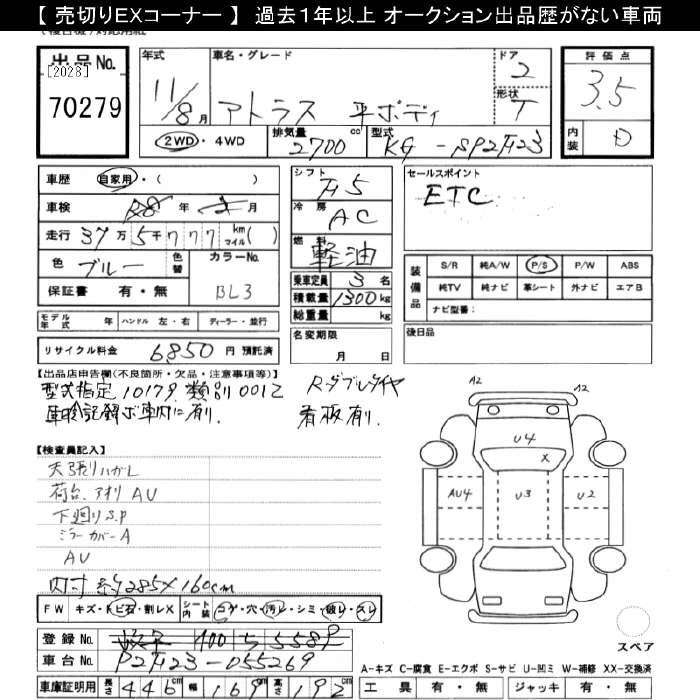 【 売切りEXコーナー 】 過去1年以上 オークション出品歴がない車両
出品No.
[2028]
70279
年式
11/8 月
車名・グレード
アトラス 平ボディ
ドア
2
形状
T
評価点
3.5
内装
D
2WD・4WD
排気量
2700 cc
型式
KG-SP2F23
車歴 自家用・( )
車検 年 月
走行 37万5千777 km マイル( )
色 ブルー
色替
カラーNo.
BL3
保証書 有・無
モデル年式 年 ハンドル 左・右 ディーラー・並行
リサイクル料金 6850 円 預託済
シフト
F5
冷房
AC
燃料
軽油
乗車定員 3 名
積載量 1300 kg
総重量 kg
名変期限
月 日
セールスポイント
ETC
装備品
S/R 純A/W P/S P/W ABS
純TV 純ナビ 革シート 外ナビ エアB
ナビ型番:
後日品
【出品店申告欄(不良箇所・欠品・注意事項等)】
型式指定 10179 類別 0012 Rダブルタイヤ
車検記録ボ車内に有り 看板有り
【検査員記入】
天張りハガレ
荷台、アオリ AU
下廻りS.P
ミラーカバーA
AU
内寸 約285×160cm
FW キズ・トビ石・割レX シート内装 コゲ・穴・汚レ・シミ・破レ・スレ
登録No. 400 ち 5589
車台No. P2F23-055269
車庫証明用 長さ 446cm 幅 169cm 高さ 192cm
A2 A2
U4
X
AU4 U3 U2
スペア
A-キズ C-腐食 E-エクボ S-サビ U-凹ミ W-補修 XX-交換済
工具 有・無 ジャッキ 有・無